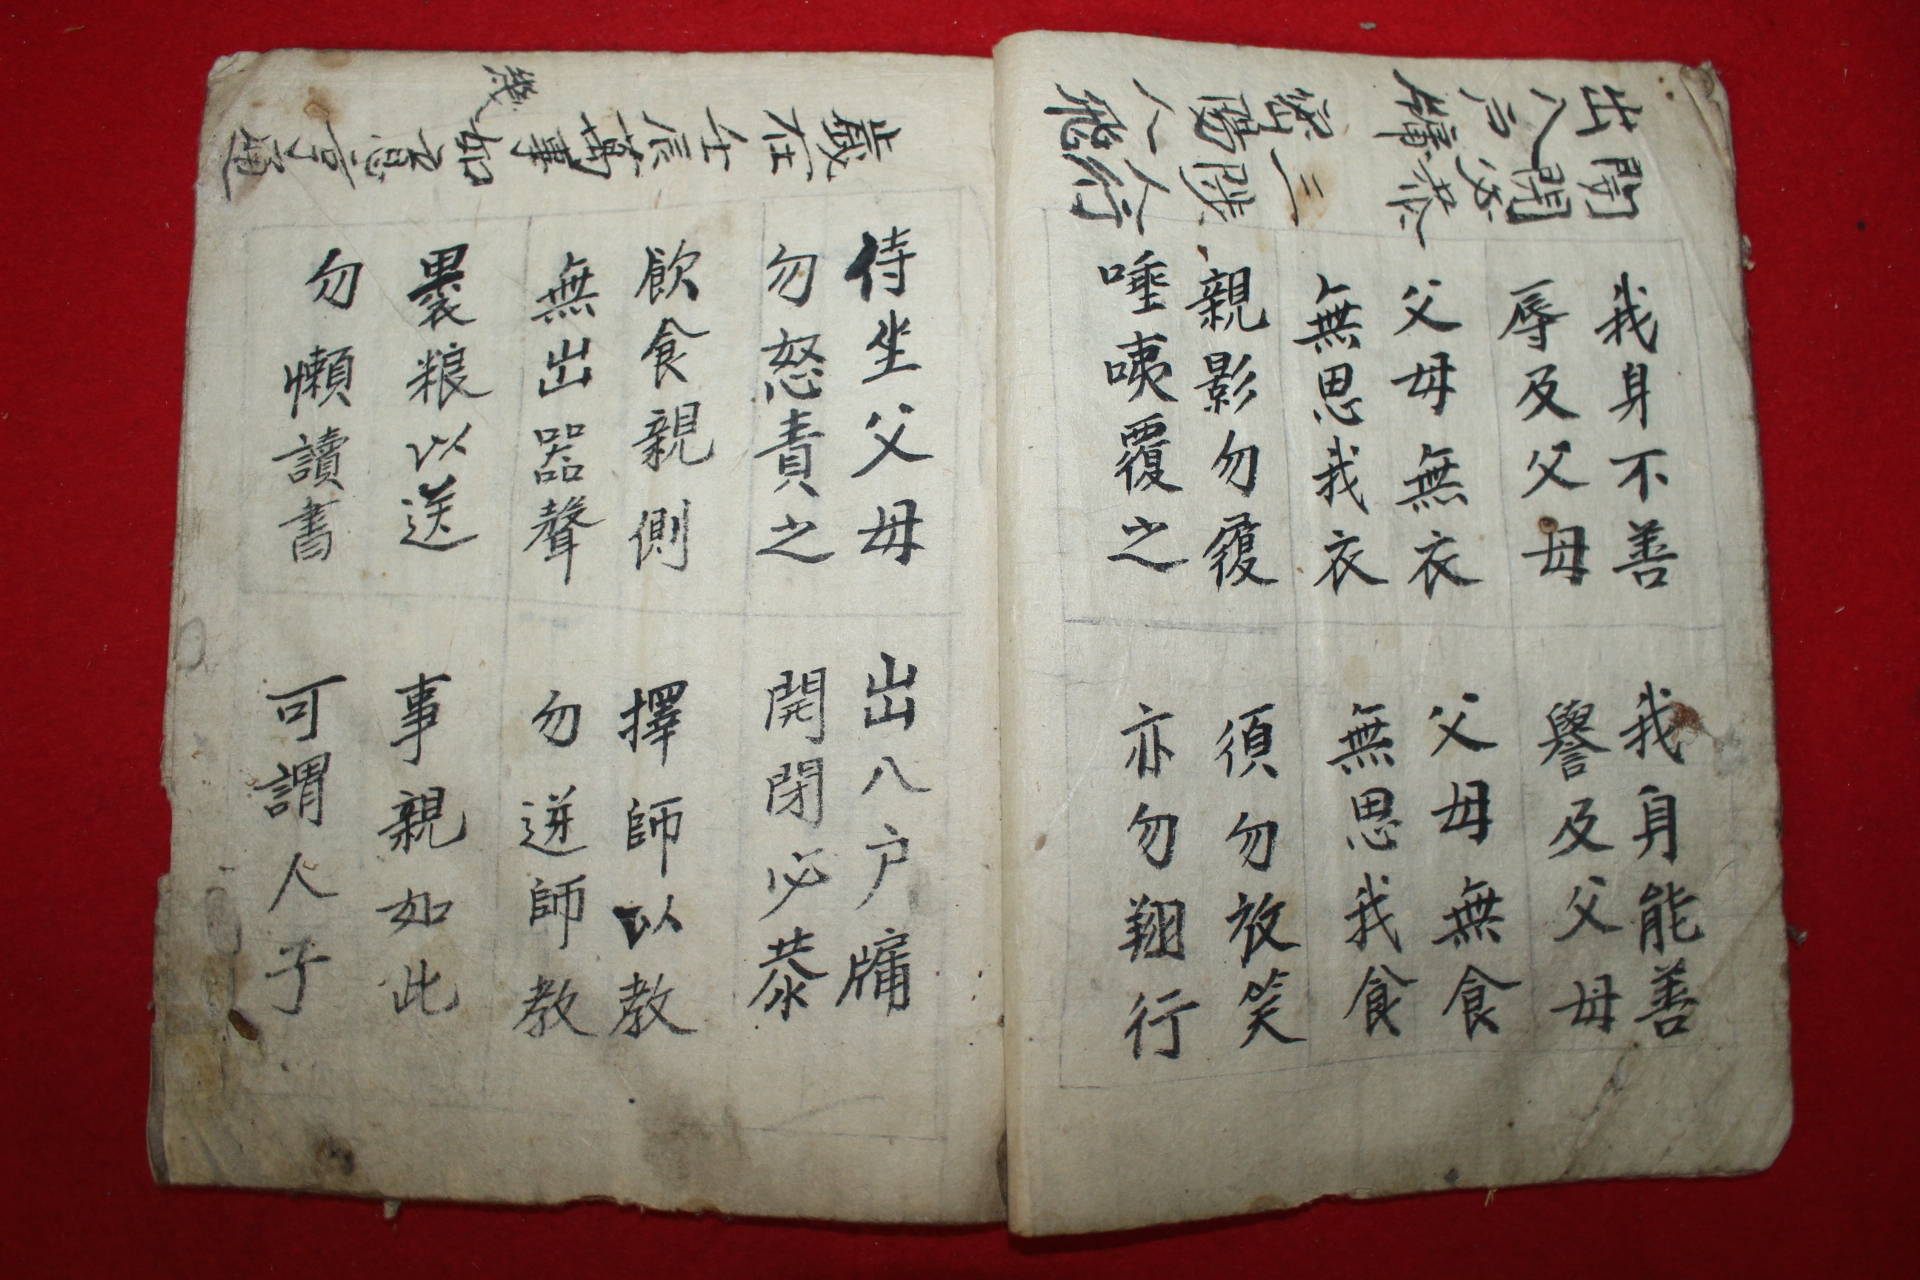 出入戶牖
開閉必恭
我身不善
辱及父母
父母無衣
無思我衣
親影勿履
唾咦覆之
我身能善
譽及父母
父母無食
無思我食
須勿放笑
亦勿翔行
歲在壬辰萬事如意亨通
侍坐父母
勿怒責之
飲食親側
無出器聲
裹粮以送
勿懶讀書
出八户牖
開閉必恭
擇師以教
勿逆師教
事親如此
可謂人子